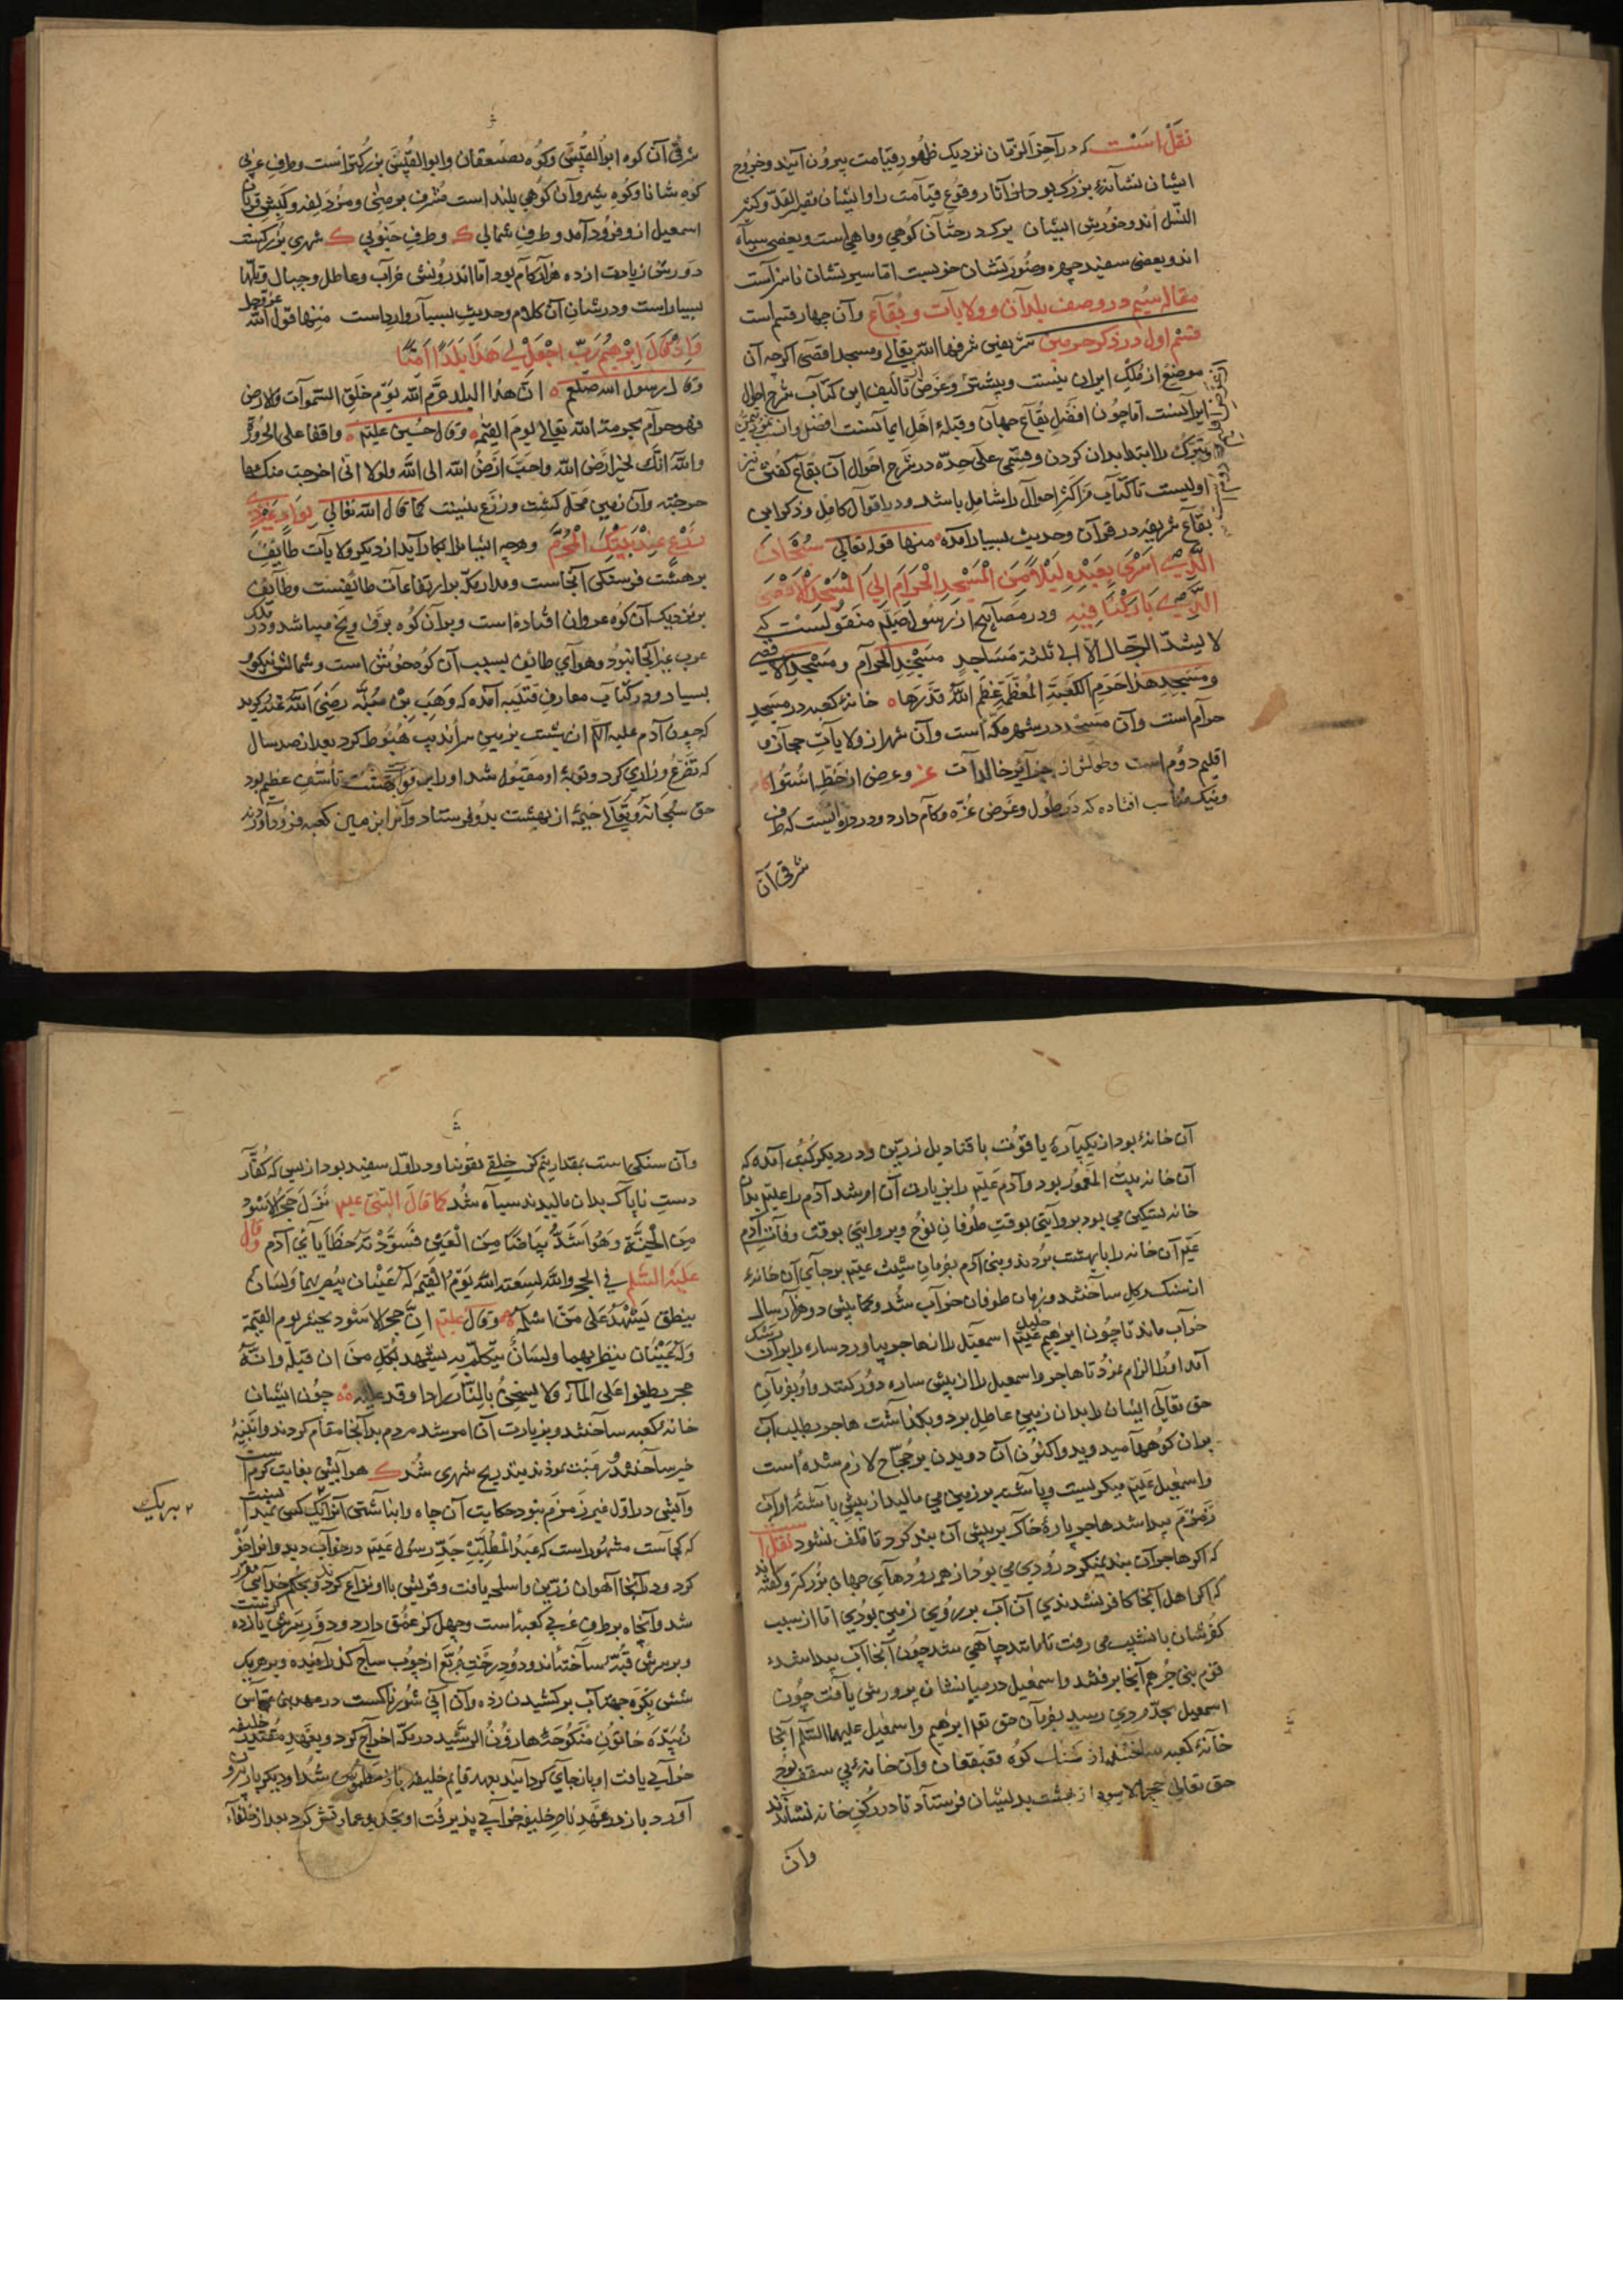 نقل است که در آخر الزمان نزدیک ظهور قیامت بیرون آیند و خروج
ایشان نشانهٔ بزرگ بود از آثار وقوع قیامت را و ایشان کثیر
النسل اند و خورش ایشان برک درختان کوهی و ماهی است و بعضی سیاه
اند و بعضی سفید چهره و صورتشان خوبست اما سیرتشان ناسزاست
مقاله سیم در وصف بلدان و ولایات و بقاع و آن چهار قسم است
قسم اول در ذکر حرمین شریفین شرفها الله تعالی و مسجد اقصی اکرچه آن
موضع از ملک ایران نیست و بیشتر غرض تألیف این کتاب شرح احوال
ایرانست اما چون افضل بقاع جهان و قبلهٔ اهل ایمانست
تبرک را ابتدا بدان کردن و قسمی علی حده در شرح احوال آن بقاع کفتن نیز
اولیست تا کتاب از اکثر احوال را شامل باشد و در اقوال کامل و ذکر این
بقاع شریفه در قرآن و حدیث بسیار آمده منها قوله تعالی سبحان
الذی اسری بعبده لیلا من المسجد الحرام الی المسجد الاقصی
الذی بارکنا فیه و در مصابیح از رسول صلعم منقولست که
لا یشد الرحال الا الی ثلثة مساجد مسجد الحرام و مسجد الاقصی
و مسجد هذا حرم الکعبة المعظمة عظم الله قدرها خانهٔ کعبه در مسجد
حرام است و آن مسجد در شهر مکه است و آن شهر از ولایات حجاز و
اقلیم دوم است و طولش از جزایر خالدات عز و عرض از خط استوا کام
و نیک مناسب افتاده که در طول و عرض عزه و کام دارد و در دره ایست که طرف
شرقی آن
شرقی آن کوه ابو القبیس و کوه قعیقعان و ابو القبیس بزرکتر است و طرف غربی
کوه شانا و کوه ثبیر و آن کوهی بلند است مشرف بر منی و مزدلفه و کبش قربان
اسمعیل از و فرود آمد و طرف شمالی ک و طرف جنوبی ک شهری بزرکست
دورش زیادت از ده هزار کام بود اما اندرونش خراب و عاطل و جبال و تلها
بسیار است و در شان آن کلام و حدیث بسیار وارد است منها قول الله عز وجل
و اذ قال ابرهیم رب اجعل لی هذا بلدا آمنا
و قال رسول الله صلعم ان هذا البلد حرم الله یوم خلق السموات و الارض
فهو حرام بحرمة الله تعالی لیوم القیمة و قال علیم واقفا علی الحزورة
والله انک لخیر ارض الله و احب ارض الله الی الله و لولا انی اخرجت منک ما
خرجته و آن زمین محل کشت و زرع نیست کما قال الله تعالی بواد غیر ذی
زرع عند بیتک المحرم و هرچه ایشان را بکار آید از دیکر ولایات طایف
بر هشت فرسنکی آنجاست و مدار مکه بر ارتفاعات طائفست و طایف
بر نزدیک آن کوه غزوان افتاده است و بر آن کوه برف و یخ میباشد و در ملک
عرب غیر آنجا نبود و هوای طائف بسبب آن کوه خوش است و ثمارش نیکو و
بسیار و در کتاب معارف قتیبه آمده که وهب بن منبه رضی الله عنه کوید
که چون آدم علیه السلام از بهشت بزمین سراندیب هبوط کرد بعد از صد سال
که تضرع و زاری کرد و توبهٔ او مقبول شد او را بر فوات بهشت تأسف عظیم بود
حق سبحانه و تعالی خیمهٔ از بهشت بدو فرستاد و آنرا بزمین کعبه فرود آوردند
آن خانهٔ بود از یکپاره یاقوت با قنادیل زرین و در دیکر کتب آمده که
آن خانه بیت المعمور بود و آدم علیم را بزیارت آن امر شد آدم را علیم بدان
خانه تسکین می بود بروایتی بوقت طوفان نوح و بروایتی بوقت وفات آدم
علیم آن خانه را بابهشت بردند و بنی آدم بفرمان شیث علیم بر جای آن خانهٔ
از سنک و کل ساختند و بزمان طوفان خراب شد و همچنین دو هزار سال
خراب ماند تا چون ابرهیم خلیل علیم اسمعیل را از هاجر بیاورد ساره را بر آن رشک
آمد او را الزام نمود تا هاجر و اسمعیل را از پیش ساره دور کند و او بفرمان
حق تعالی ایشان را بدان زمین عاطل برد و بکذاشت هاجر بطلب آب
بر آن کوهها میدوید و اکنون آن دویدن بر حجاج لازم شده است
و اسمعیل علیم میکریست و پاشنه بر زمین می مالید از پیش پاشنهٔ او آب
زمزم پیدا شد هاجر پارهٔ خاک بر پیش آن بند کرد تا تلف نشود نقل است
که اکر هاجر آن بند نمیکرد رودی می بود از همه رودهای جهان بزرکتر و کفته اند
که اکر اهل آنجا کافر نشدندی آن آب بر روی زمین بودی اما از سبب
کفرشان با نشیب می رفت تا مانند چاهی شد چون آنجا آب پیدا شد
قوم بنی جرهم آنجا برفتند و اسمعیل در میانشان پرورش یافت چون
اسمعیل بحد مردی رسید بفرمان حق تعم ابرهیم و اسمعیل علیهما السلام آنجا
خانهٔ کعبه ساختند از سنک کوه قعیقعان و آن خانهٔ بی سقف بود
حق تعالی حجر الاسود از بهشت بدیشان فرستاد تا در رکن خانه نشاندند
وآن
وآن سنکی است بمقدار نیم کز خلقی تقویتا و در اول سفید بود از بس که کفار
دست ناپاک بدان مالیدند سیاه شد کما قال النبی علیم نزل حجر الاسود
من الجنة و هو اشد بیاضا من فسودته خطایا بنی آدم و قال
علیه السلام فی الحجر والله لیبعثه الله یوم القیمة له عینان یبصر بهما و لسان
ینطق یشهد علی من استلمه و قال علیم ان حجر الاسود یحشر یوم القیمة
وله عینان ینظر بهما و لسان یتکلم به یشهد لکل من ان قبله و انه
حجر یطفوا علی الماء و لا یسخن بالنار چون ایشان
خانهٔ کعبه ساختند و بزیارت آن امر شد مردم بدانجا مقام کردند و ابنیهٔ
خیر ساختند و رغبت نمودند بتدریج شهری شد ک هوایش بغایت کرم است
وآبش در اول غیر زمزم نبود حکایت آن چاه و انباشتن آنرا یک کسی نمیدانست
که کجاست مشهور است که عبد المطلب جد رسول علیم در خواب دید و آنرا حفر
کرد و در آنجا آهوان زرین و اسلحه یافت و قریش با او نزاع کردند و بحکم خدای مقرر
شد و آن چاه بر طرف غربی کعبه است و چهل کز عمق دارد و دور سرش یازده کزست
و بر سرش قبهٔ ساخته‌اند و دو درخت مربع از چوب ساج کذرانیده و بر هر یک
شش بکره جهة آب برکشیدن زده و آن آبی شورناکست
زبیده خاتون منکوحهٔ هارون الرشید در مکه اخراج کرد و بعهد مقتدر خلیفه
خرابی یافت او بازجای کردانید بعهد قایم خلیفه باز مطموس شد او دیکر بار بیرون
آورد باز در عهد ناصر خلیفه خرابی پذیرفت او تجدید عمارتش کرد بعد از خلفاء
۲ بهریک